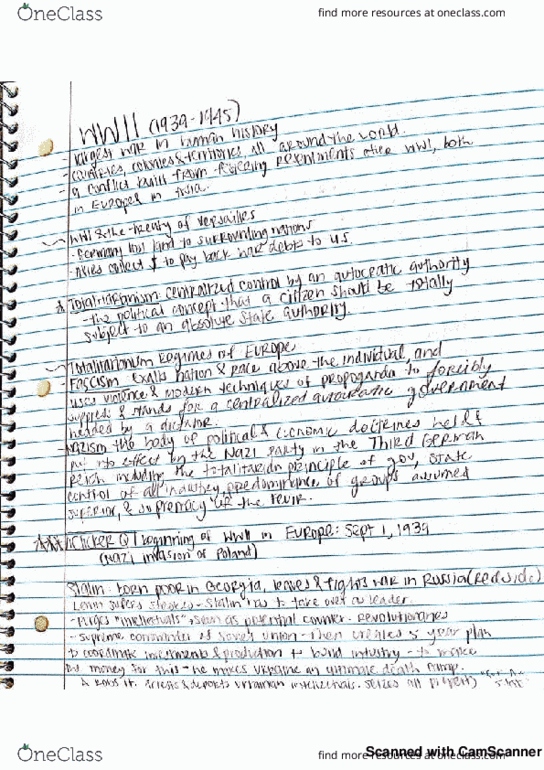 OneClass
find more resources at oneclass.com
WWII (1939-1945)
- largest war in human history
- countries, colonies & territories, all around the world.
- a conflict from resentments after WWI, both
in Europe & in Asia.
WWI & the treaty of Versailles
- Germany lost land to surrounding nations
- Allies collect $ to pay back war debts to US.
Totalitarianism: centralized control by an autocratic authority
- the political concept that a citizen should be totally
subject to an absolute state authority.
Totalitarianism Regimes of Europe
- Fascism: Exalts nation & race above the individual, and
uses violence & modern techniques of propaganda to forcibly
suppress & stands for a centralized autocratic government
headed by a dictator.
Nazism: the body of political & economic doctrines held &
put into effect by the Nazi party in the Third German
Reich including the totalitarian principle of gov, state
control of all industry, predominance of groups assumed
superior, & supremacy of the
Clicker Q | beginning of WWII in Europe: Sept 1, 1939
(Nazi invasion of Poland)
Stalin: born poor in Georgia, leaves & fights war in Russia (red side)
Lenin strokes - Stalin to take over as leader.
- Purges "intellectuals" seen as potential counter-revolutionaries
- supreme commander of Soviet union - then creates 5 year plan
to coordinate investments & production to build industry - to make
money for this - he makes Ukraine an ultimate death camp.
& deports Ukrainian intellectuals. seizes all property
OneClass
find more resources at oneclass.com
Scanned with CamScanner